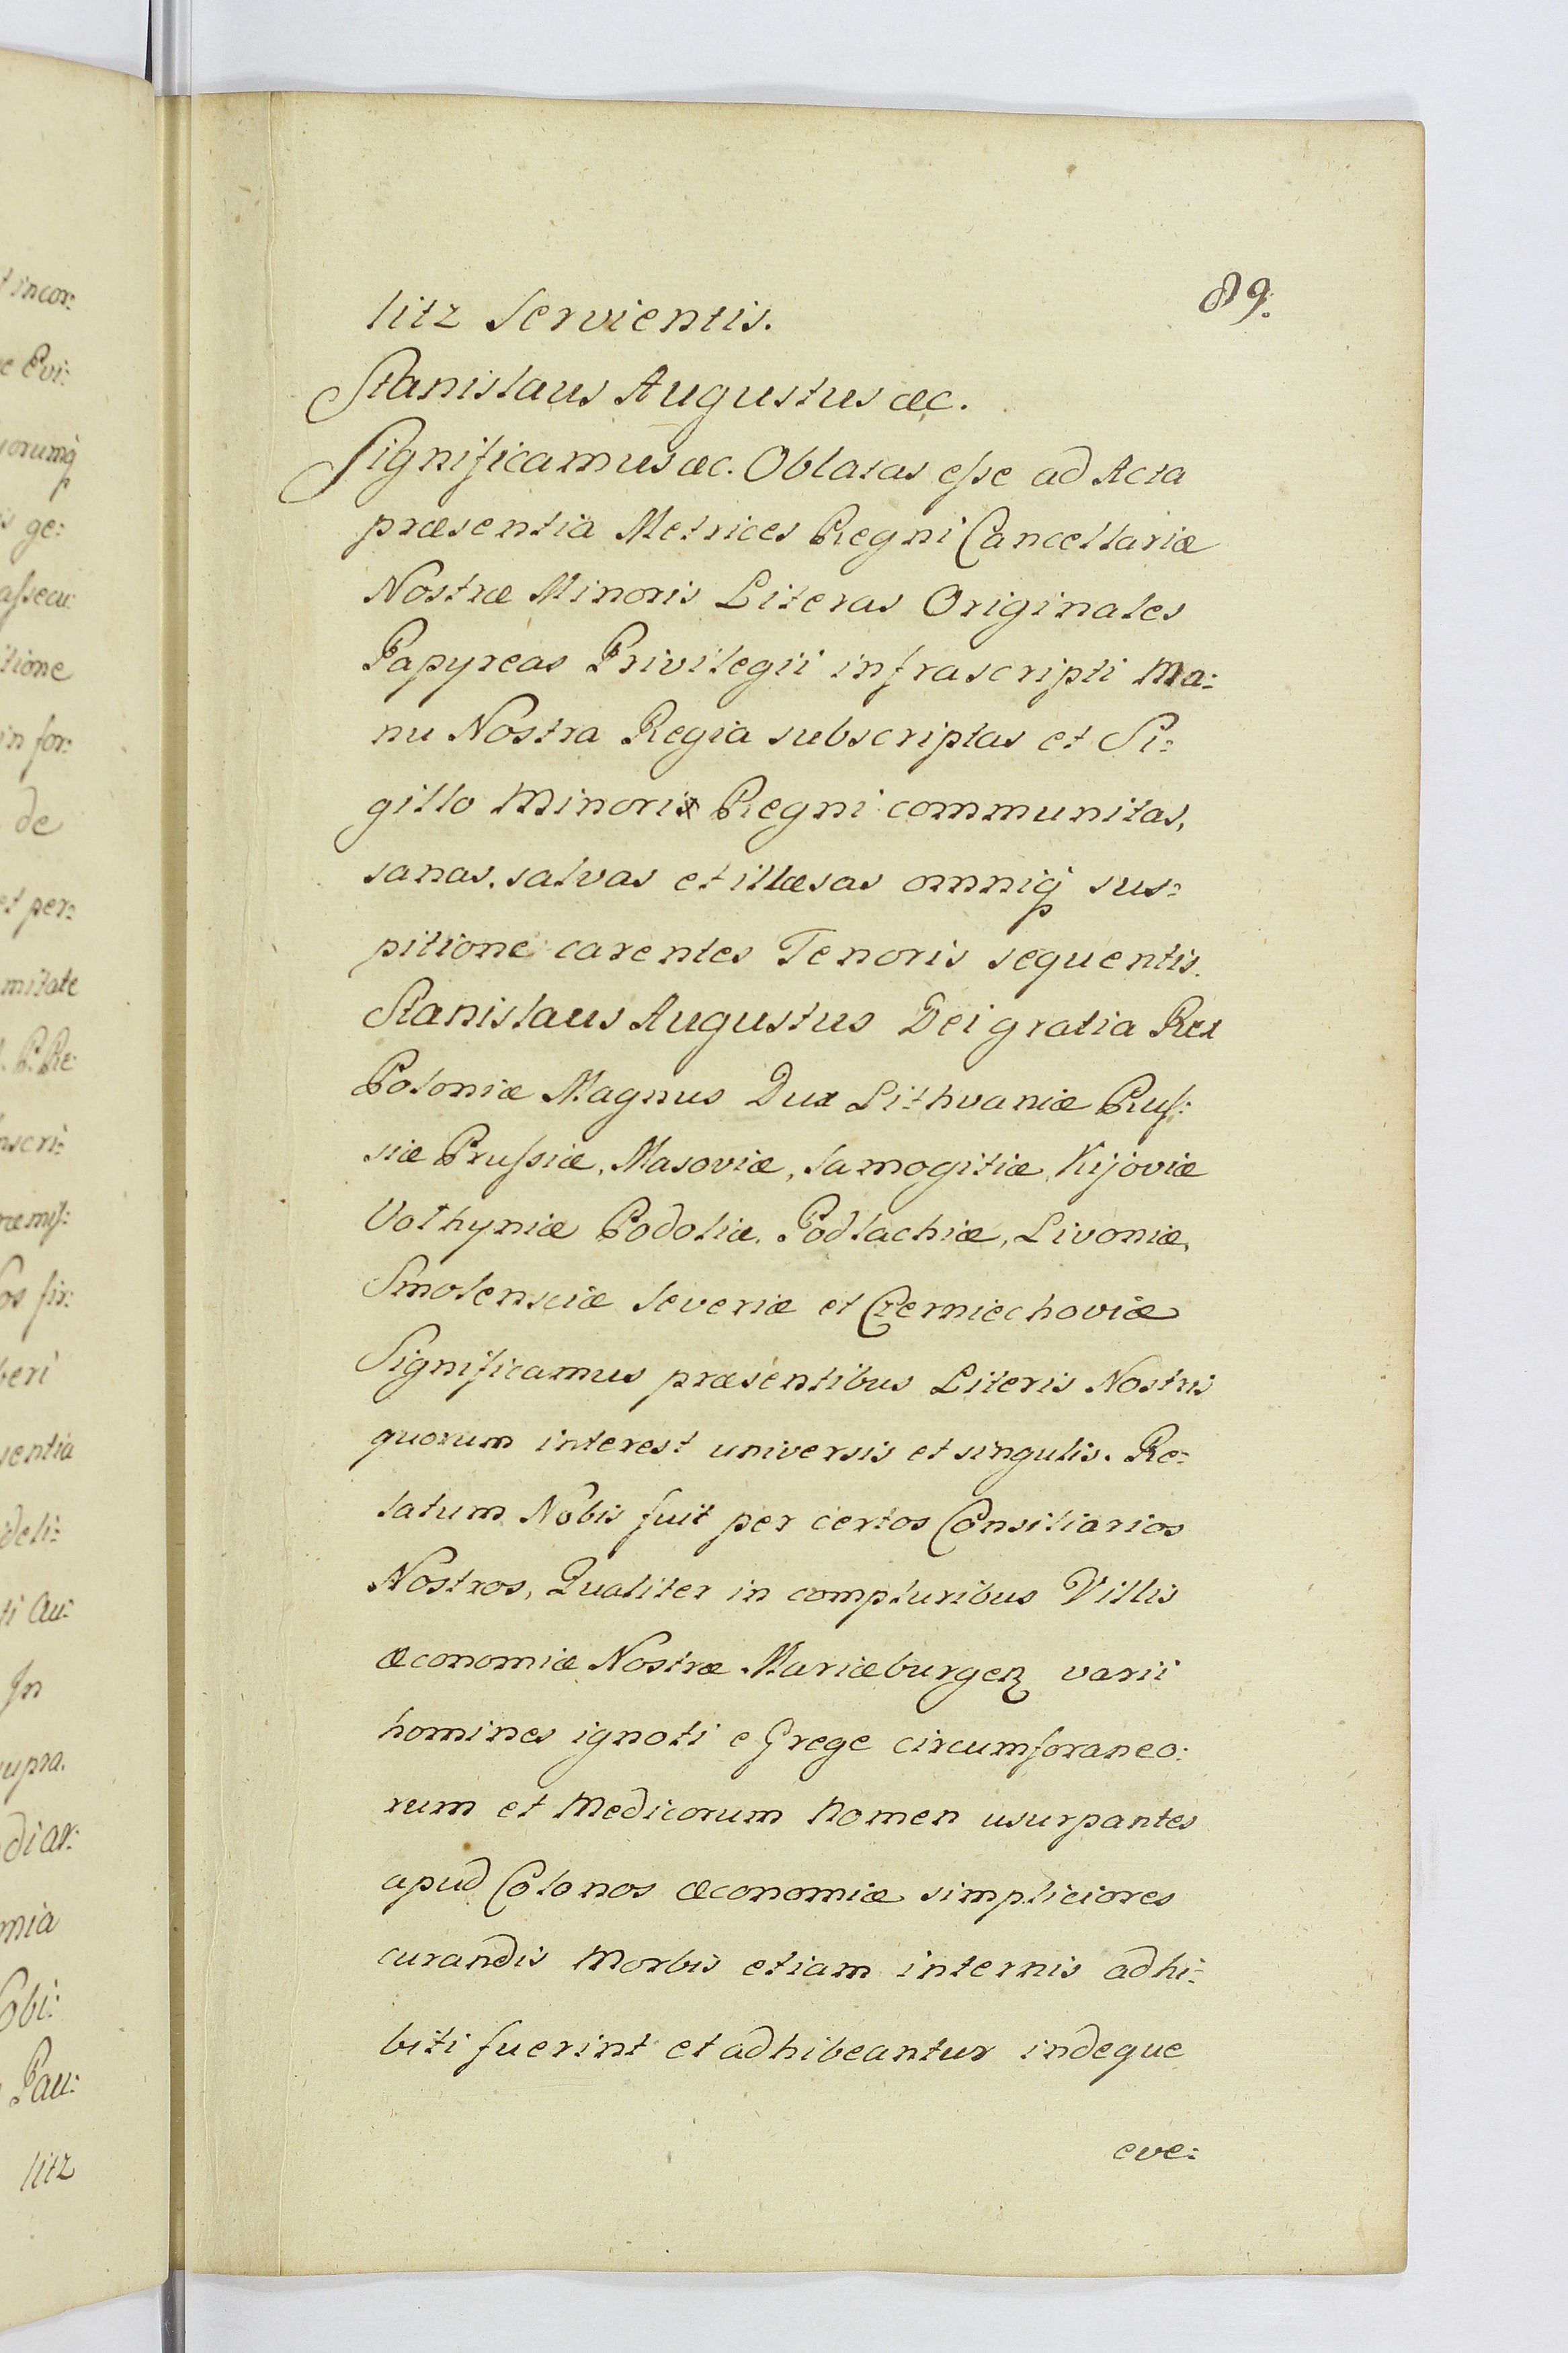 89.
litz Servientis.
Stanislaus Augustus æc.
Significamus æc. Oblatas eſse ad Acta
præsentia Metrices Regni Cancellariæ
Nostræ Minoris Literas Originales
Papyreas Privilegii infrascripti Ma:
nu Nostra Regia subscriptas et Si:
gillo Minoris Regni communitas,
sanas, salvas et illæsas omniq̃ sus:
pitione carentes Tenoris sequentis.
Stanislaus Augustus Dei gratia Rex
Poloniæ Magnus Dux Lithvaniæ Ruſ:
siæ Pruſsiæ, Masoviæ, Samogitiæ, Kijoviæ
Volhyniæ Podoliæ, Podlachiæ, Livoniæ,
Smolensciæ Severiæ et Czerniechoviæ
Significamus præsentibus Literis Nostris
quorum interest universis et singulis. Re:
latum Nobis fuit per certos Consiliarios
Nostros, Qualiter in compluribus Villis
Œconomiæ Nostræ Mariæburgen̄ varii
homines ignoti e Grege circumforaneo:
rum et Medicorum Nomen usurpantes
apud Colonos Œconomiæ simpliciores
curandis Morbis etiam internis adhi:
biti fuerint et adhibeantur indeque
eve: